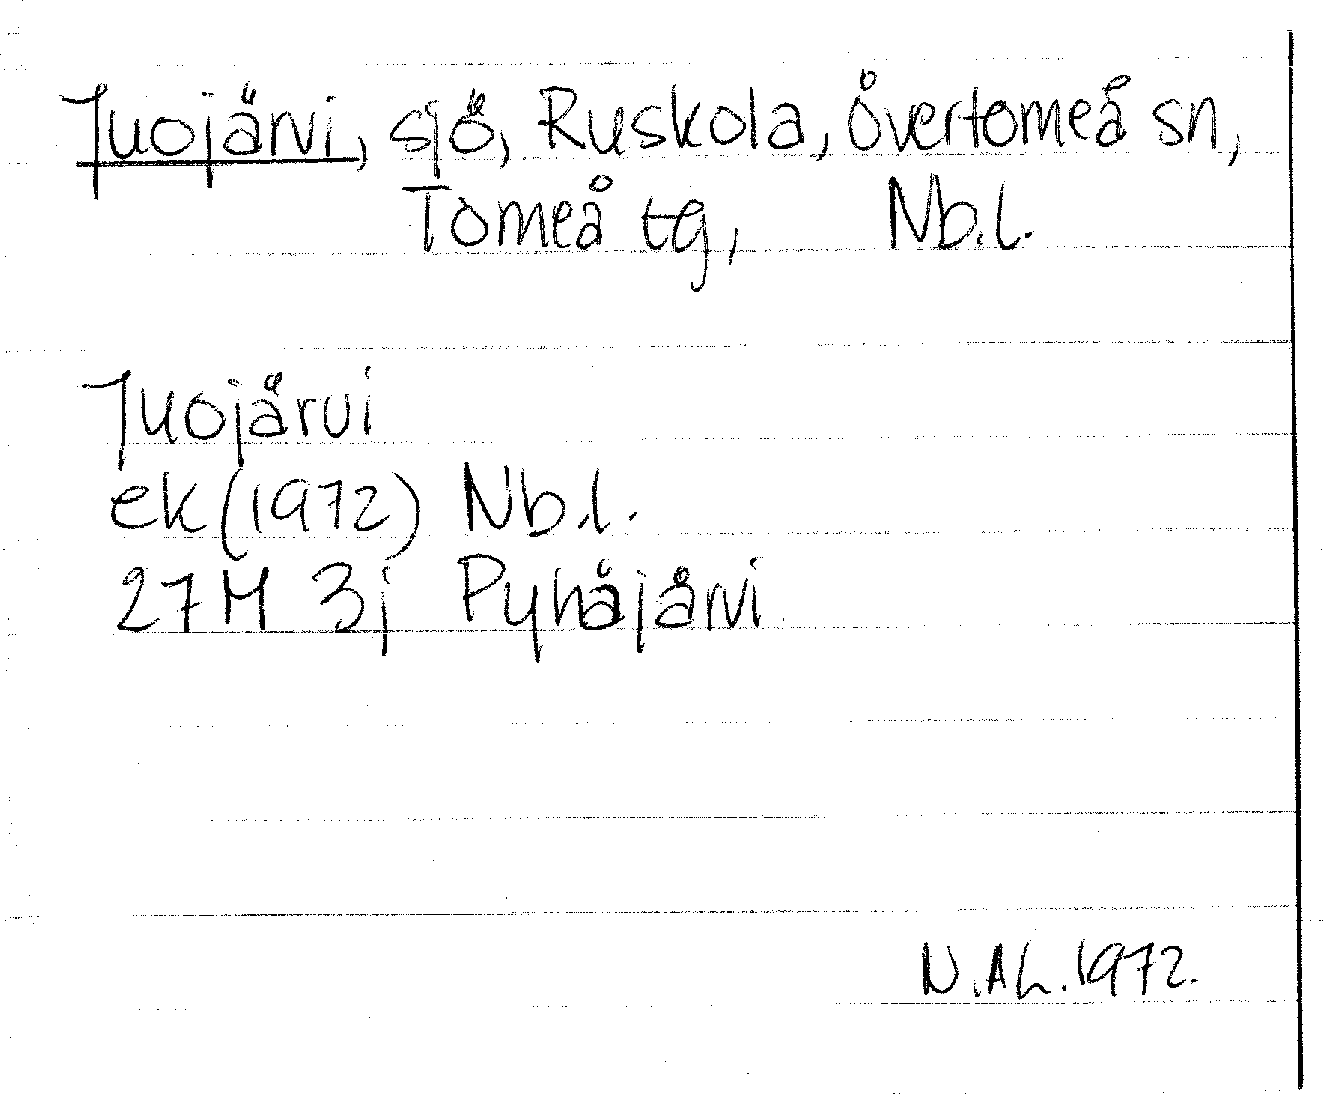 Juojärvi, sjö, Ruskola, Övertorneå sn,
Torneå tg, Nb.l.
Juojärvi
ek (1972) Nb.l.
27M 3j Pyhäjärvi
N.Ah. 1972.